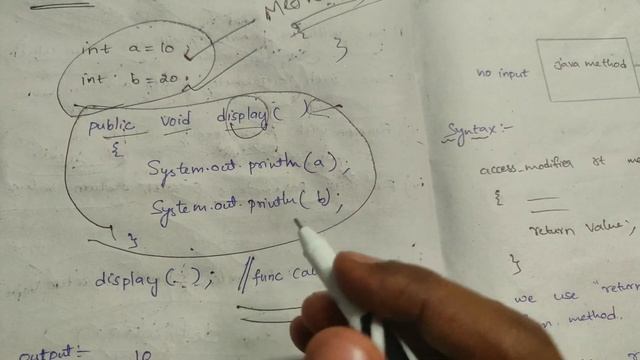 int a = 10;
int b = 20;
}
public void display( )
{
System.out.println(a);
System.out.println(b);
}
display( );  // func
output:- 10
no input  java method
Syntax:-
access_modifier rt
{
return value;
}
we use "return
method.